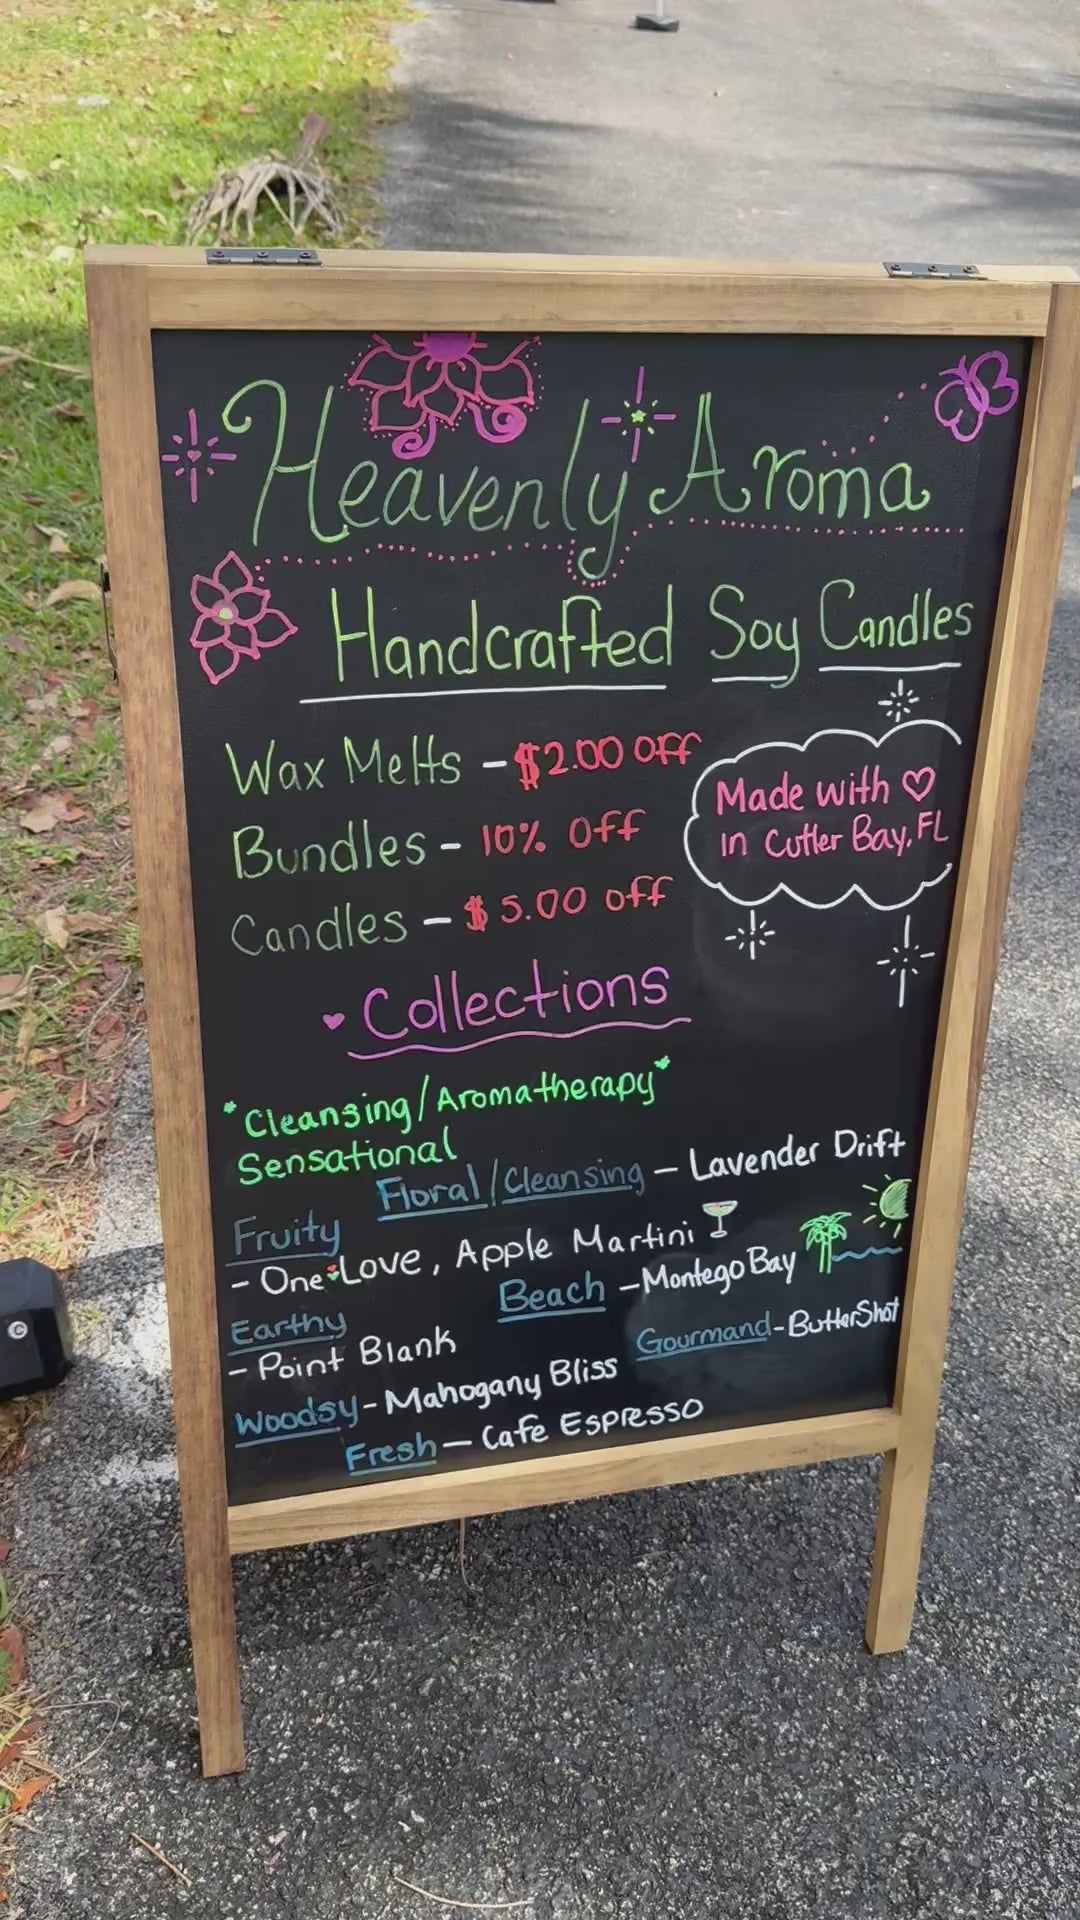 Heavenly Aroma
Handcrafted Soy Candles
Wax Melts - $2.00 off
Bundles - 10% Off
Candles - $5.00 off
Made with ♡
in Cutler Bay, FL
♥ Collections
*Cleansing/Aromatherapy*
Sensational
Floral/Cleansing - Lavender Drift
Fruity
- One♥Love, Apple Martini
Beach - Montego Bay
Earthy
- Point Blank
Gourmand - ButterShot
Woodsy - Mahogany Bliss
Fresh - Cafe Espresso